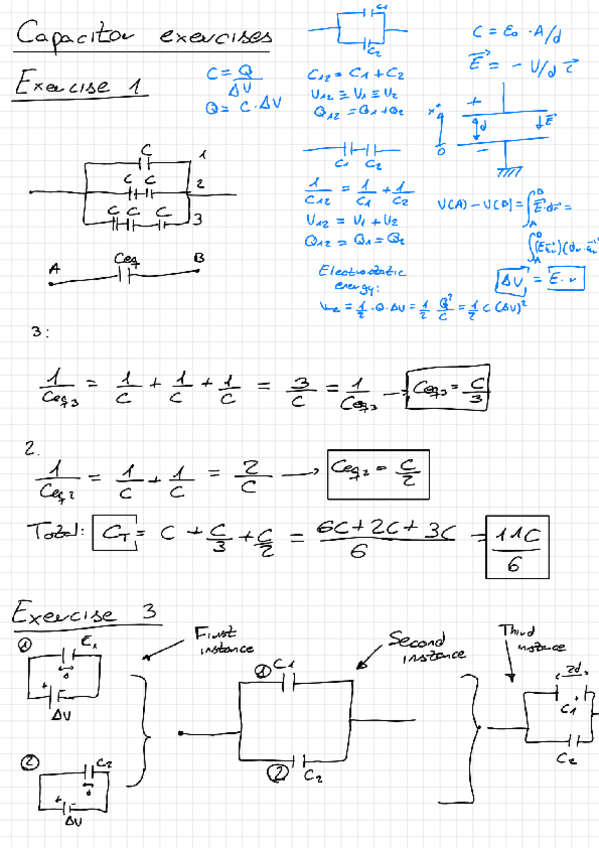 Capacitor exercises
Exercise 1
C = Q/ΔV
Q = C · ΔV
C1
C2
C12 = C1 + C2
U12 ≡ U1 ≡ U2
Q12 = Q1 + Q2
C1 C2
1/C12 = 1/C1 + 1/C2
U12 = U1 + U2
Q12 = Q1 = Q2
Electrostatic
energy:
= 1/2 · Q · ΔU = 1/2 Q²/C = 1/2 C (ΔU)²
C = ε0 · A/d
E = - U/d
+
d
E
0
-
U(A) - U(B) = ∫ E · dr =
ΔU = E · r
C 1
C C 2
C C C 3
A Ceq B
3:
1/Ceq3 = 1/C + 1/C + 1/C = 3/C = 1/Ceq3 → Ceq3 = C/3
2.
1/Ceq2 = 1/C + 1/C = 2/C → Ceq2 = C/2
Total: CT = C + C/3 + C/2 = 6C + 2C + 3C/6 = 11C/6
Exercise 3
First
instance
Second
instance
Third
instance
1 E1
+
ΔV
2 C2
+
ΔU
1 C1
2 C2
2d
C1
C2